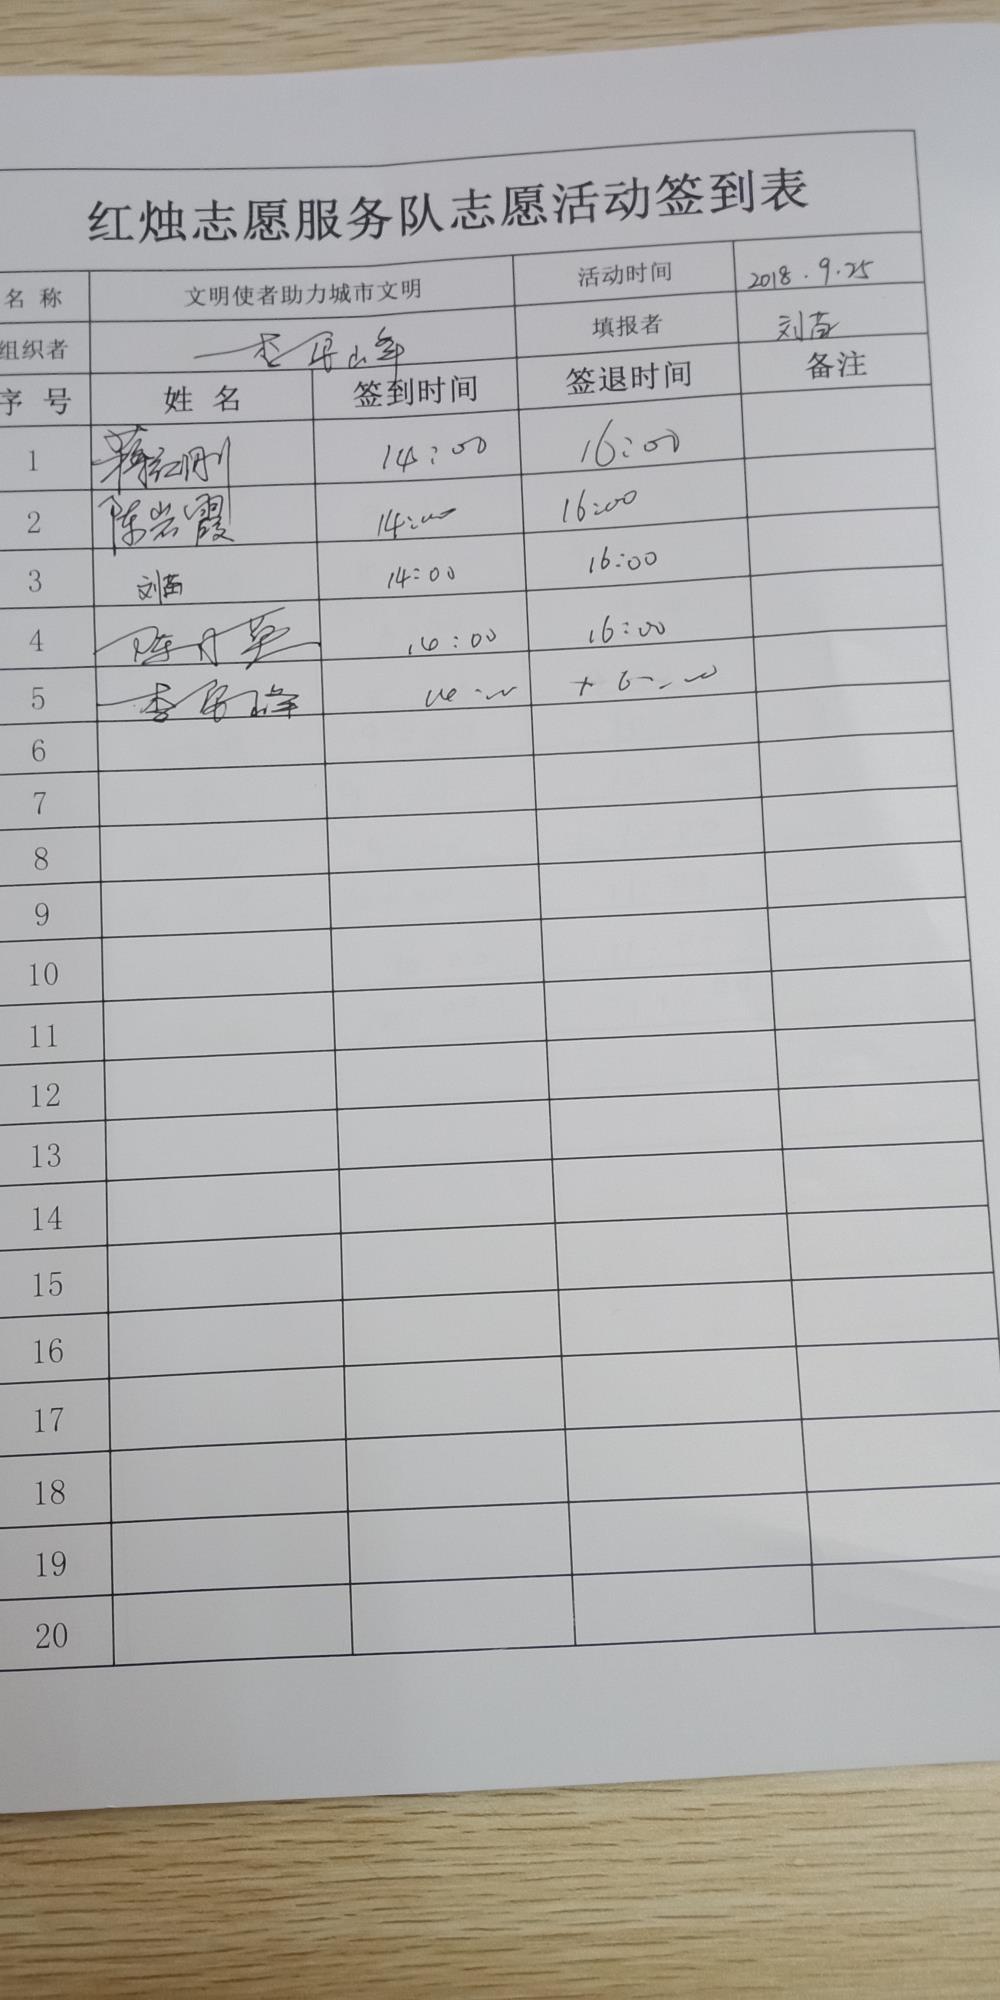 红烛志愿服务队志愿活动签到表
名 称 文明使者助力城市文明 活动时间 2018.9.25
组织者 李居峰 填报者 刘苗
序 号 姓 名 签到时间 签退时间 备注
1 蒋红刚 14:00 16:00
2 陈岩霞 14:00 16:00
3 刘苗 14:00 16:00
4 陈月英 14:00 16:00
5 李居峰 14:00 16:00
6
7
8
9
10
11
12
13
14
15
16
17
18
19
20